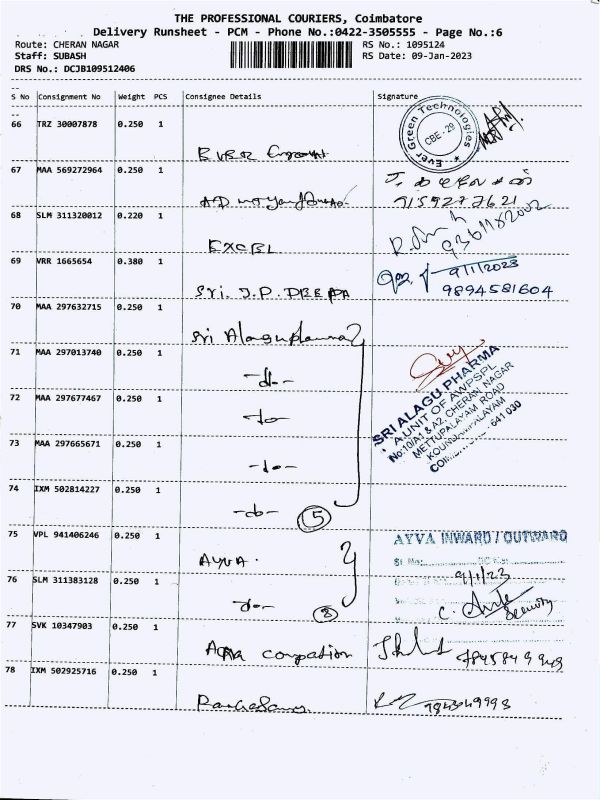 THE PROFESSIONAL COURIERS, Coimbatore
Delivery Runsheet - PCM - Phone No.:0422-3505555 - Page No.:6
Route: CHERAN NAGAR
Staff: SUBASH
DRS No.: DCJB109512406
RS No.: 1095124
RS Date: 09-Jan-2023
S No Consignment No Weight PCS Consignee Details Signature
66 TRZ 30007878 0.250 1
Ever Green Technologies
CBE - 29
67 MAA 569272964 0.250 1
9159277621
68 SLM 311320012 0.220 1
EXCEL
69 VRR 1665654 0.380 1
Sri. J.P. DEEPA
9/1/2023
9894581604
70 MAA 297632715 0.250 1
Sri
71 MAA 297013740 0.250 1
-do-
72 MAA 297677467 0.250 1
-do-
73 MAA 297665671 0.250 1
-do-
SRI ALAGU PHARMA
A UNIT OF AWPSPL
No:10/A1 & A2, CHERAN NAGAR
METTUPALAYAM ROAD
641 030
74 IXM 502814227 0.250 1
-do- 5
75 VPL 941406246 0.250 1
AYVA.
AYVA INWARD / OUTWARD
9/1/23
76 SLM 311383128 0.250 1
-do-
Security
77 SVK 10347903 0.250 1
78 IXM 502925716 0.250 1